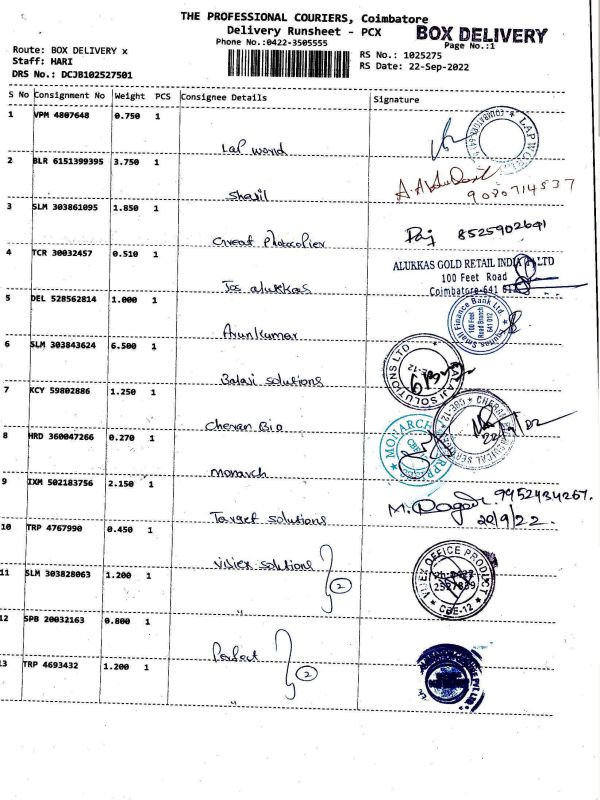 THE PROFESSIONAL COURIERS, Coimbatore
Delivery Runsheet - PCX
BOX DELIVERY
Phone No.:0422-3505555
Page No.:1
Route: BOX DELIVERY x
RS No.: 1025275
Staff: HARI
RS Date: 22-Sep-2022
DRS No.: DCJB102527501
S No Consignment No Weight PCS Consignee Details Signature
1 VPM 4807648 0.750 1
Lap world
2 BLR 6151399395 3.750 1
9080714537
3 SLM 303861095 1.850 1
Great photocopier
8525902641
4 TCR 30032457 0.510 1
ALUKKAS GOLD RETAIL INDIA P LTD
100 Feet Road
Coimbatore-641
Jos alukkas
5 DEL 528562814 1.000 1
Finance Bank Ltd
100 Feet
Road Branch
641 012
Arunkumar
6 SLM 303843624 6.500 1
BALAJI SOLUTIONS LTD
CBE-12
Balaji solutions
7 KCY 59802886 1.250 1
CBE-12
Cheran Bio
8 HRD 360047266 0.270 1
MONARCH
monarch
9 IXM 502183756 2.150 1
9952434267.
20/9/22.
Target solutions
10 TRP 4767990 0.450 1
Vivex solutions
11 SLM 303828063 1.200 1
2
VIVEX OFFICE PRODUCT
CBE-12
"
12 SPB 20032163 0.800 1
Perfect
13 TRP 4693432 1.200 1
2
"